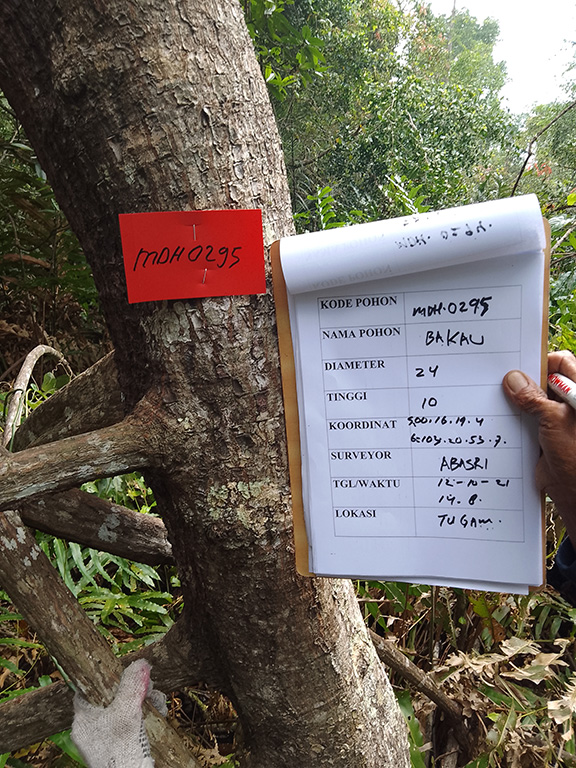 MDH0295
KODE POHON MDH.0295
NAMA POHON BAKAU
DIAMETER 24
TINGGI 10
KOORDINAT S,00.16.19.4
E:104.20.53.7.
SURVEYOR ABASRI
TGL/WAKTU 12-10-21
14.8.
LOKASI TUGAM.